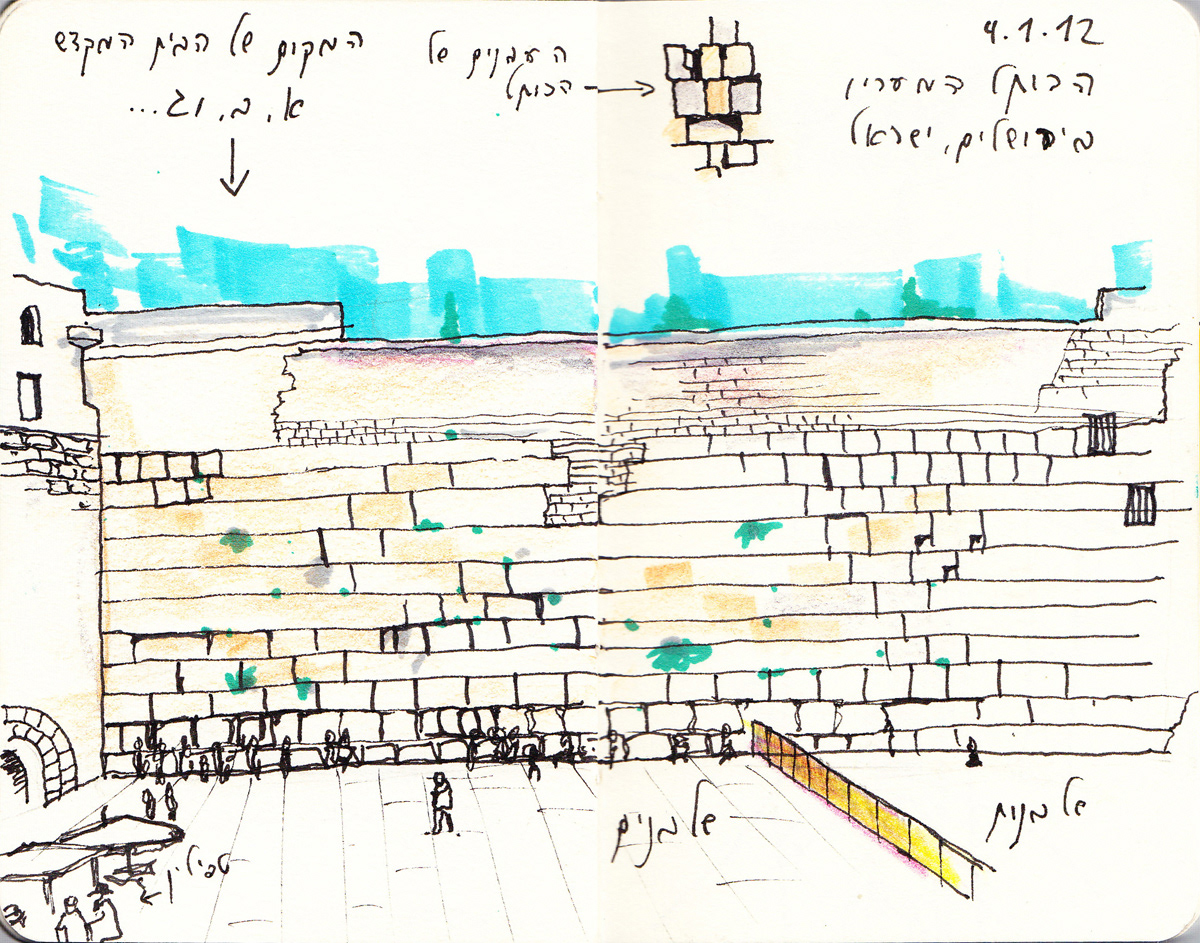 4.1.12
הכותל המערבי
בירושלים, ישראל
העבנים של
הכותל
המקום של הבית המקדש
א, ב, וג...
של בנות
של בנים
טפילין